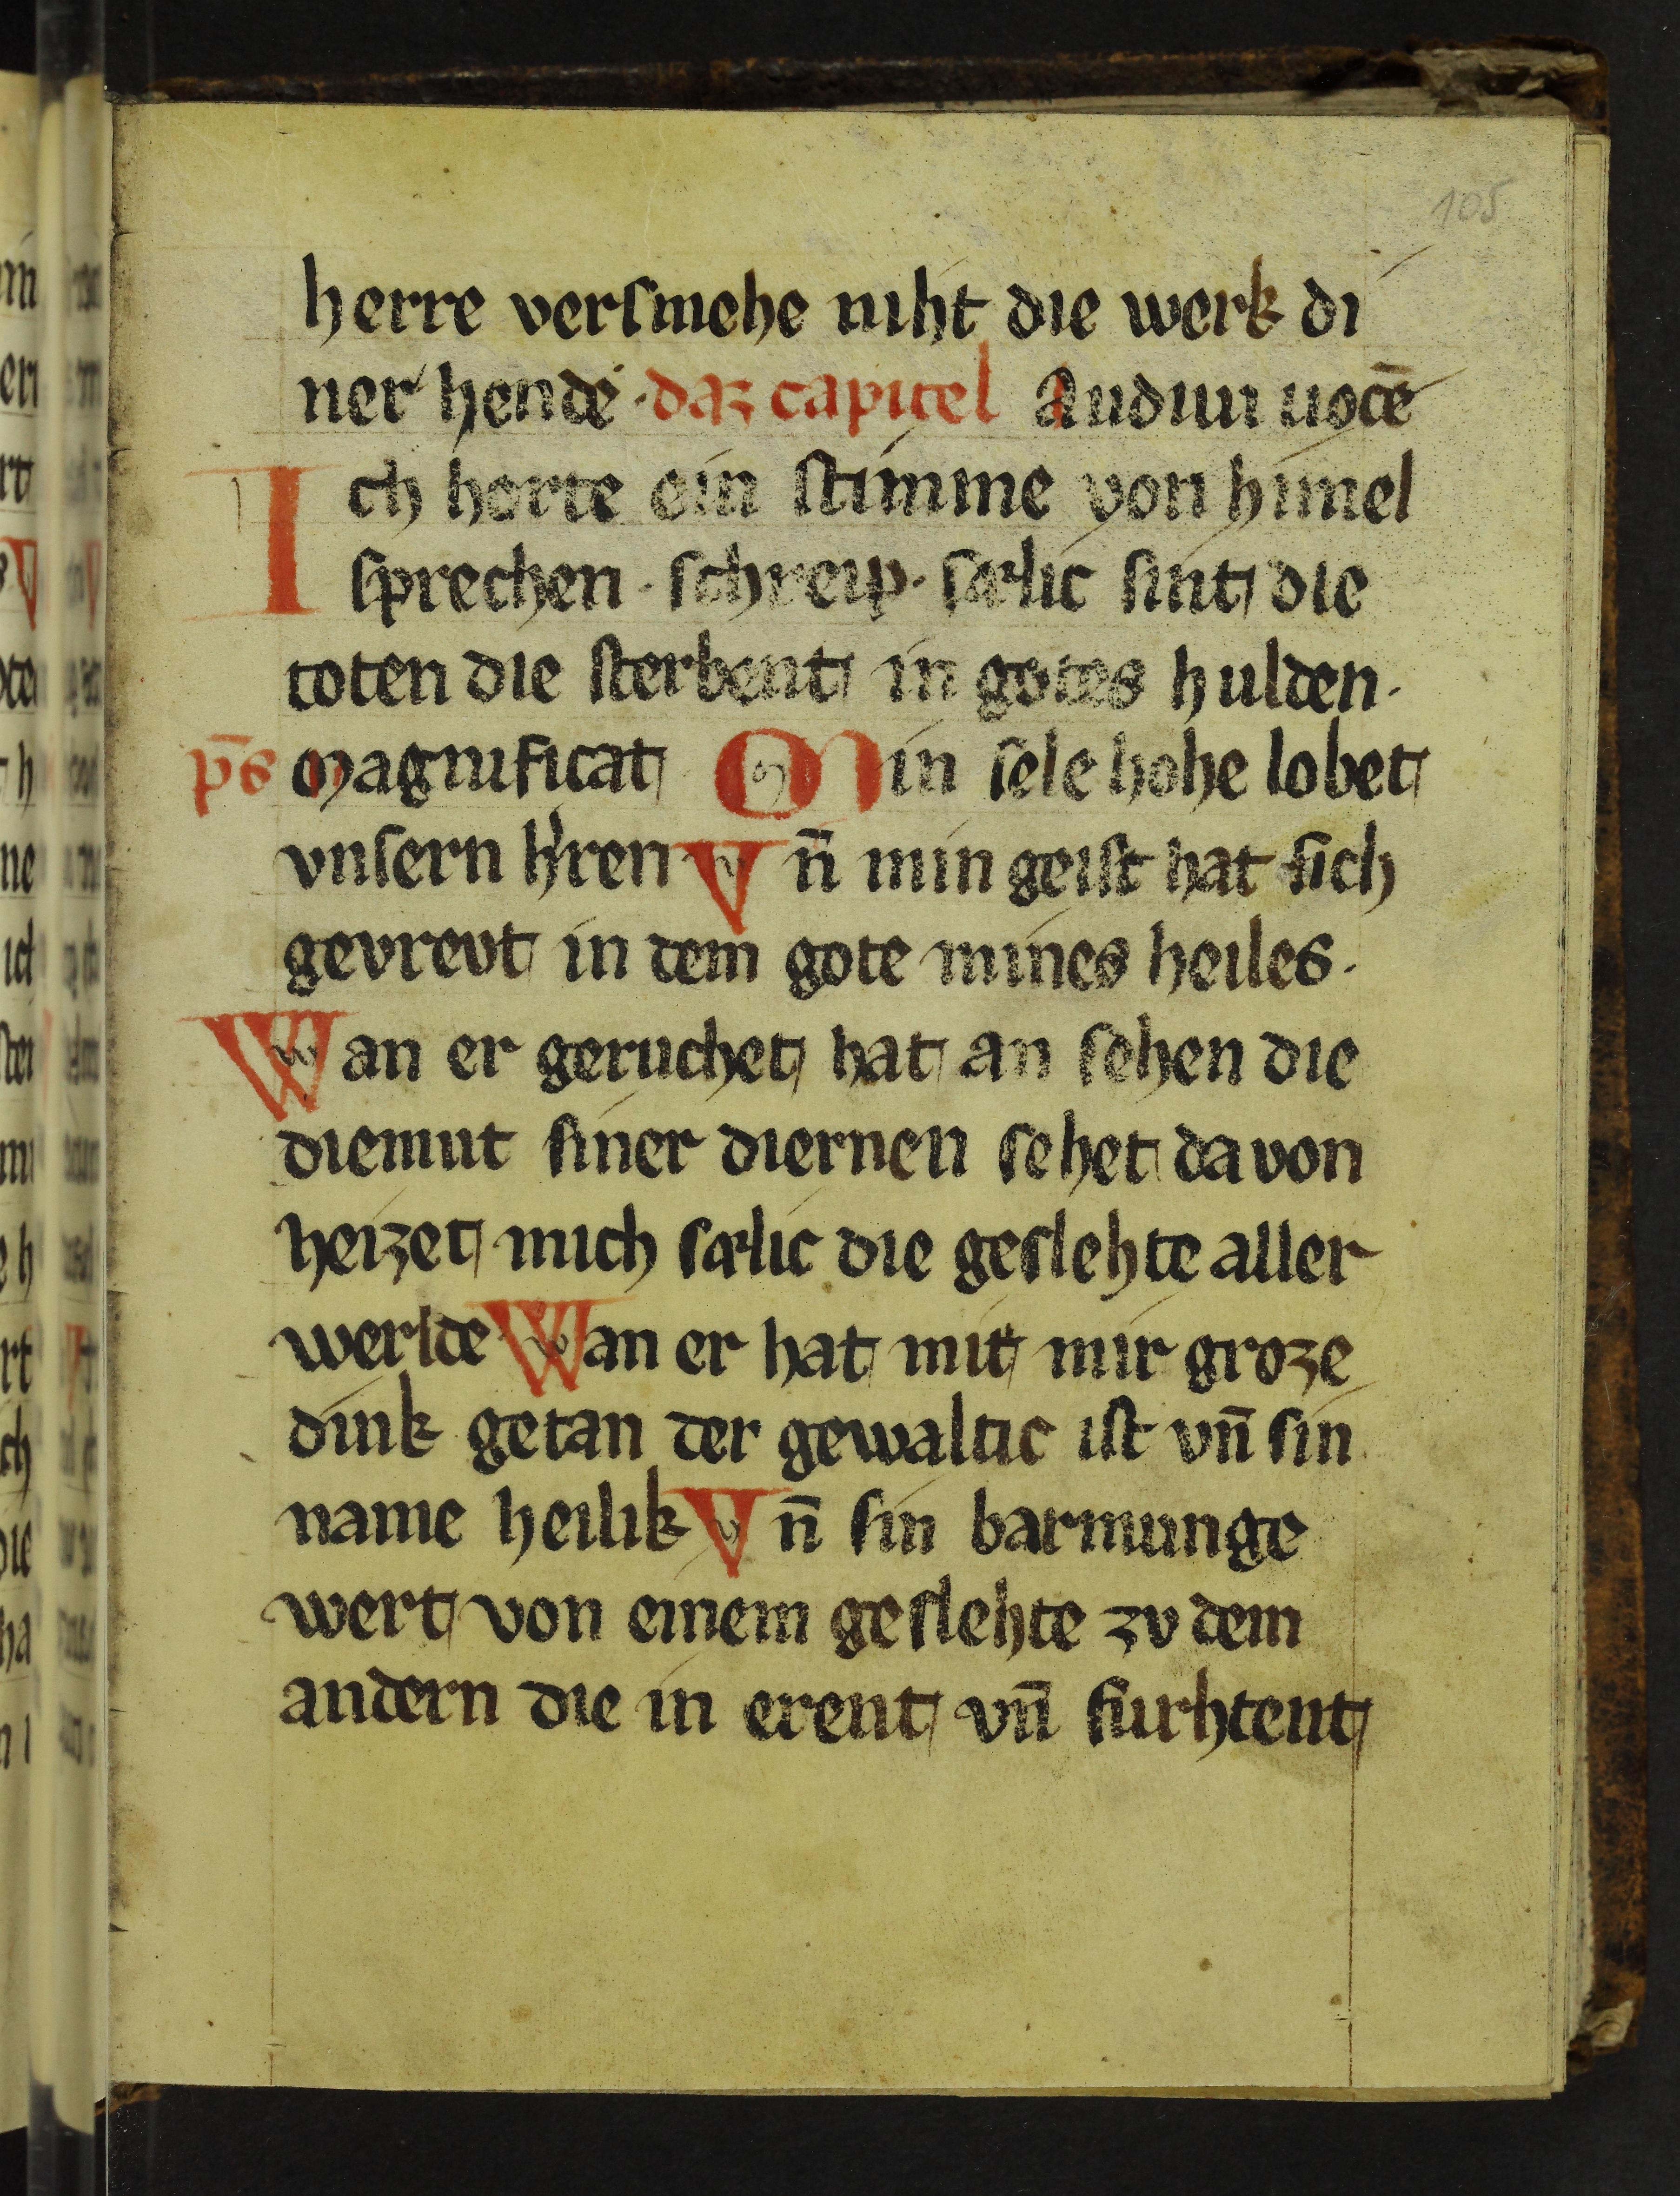 105
herre verſmehe niht die werk di
ner hende · daz capitel Audiui uocē
Ich horte ein ſtimme von himel
ſprechen · ſchreip · ſælic ſint die
toten die ſterbent in gotes hulden ·
p̄s magnificat Min ſele hohe lobet
vnſern h̓ren Vn̄ min geiſt hat ſich
gevrevt in dem gote mines heiles ·
Wan er geruchet hat an ſehen die
diemut ſiner diernen ſehet da von
heizet mich ſælic die geſlehte aller
werlde Wan er hat mit mir groze
dink getan der gewaltic iſt vn̄ ſin
name heilik Vn̄ ſin barmunge
wert von einem geſlehte zv dem
andern die in erent vn̄ furhtent